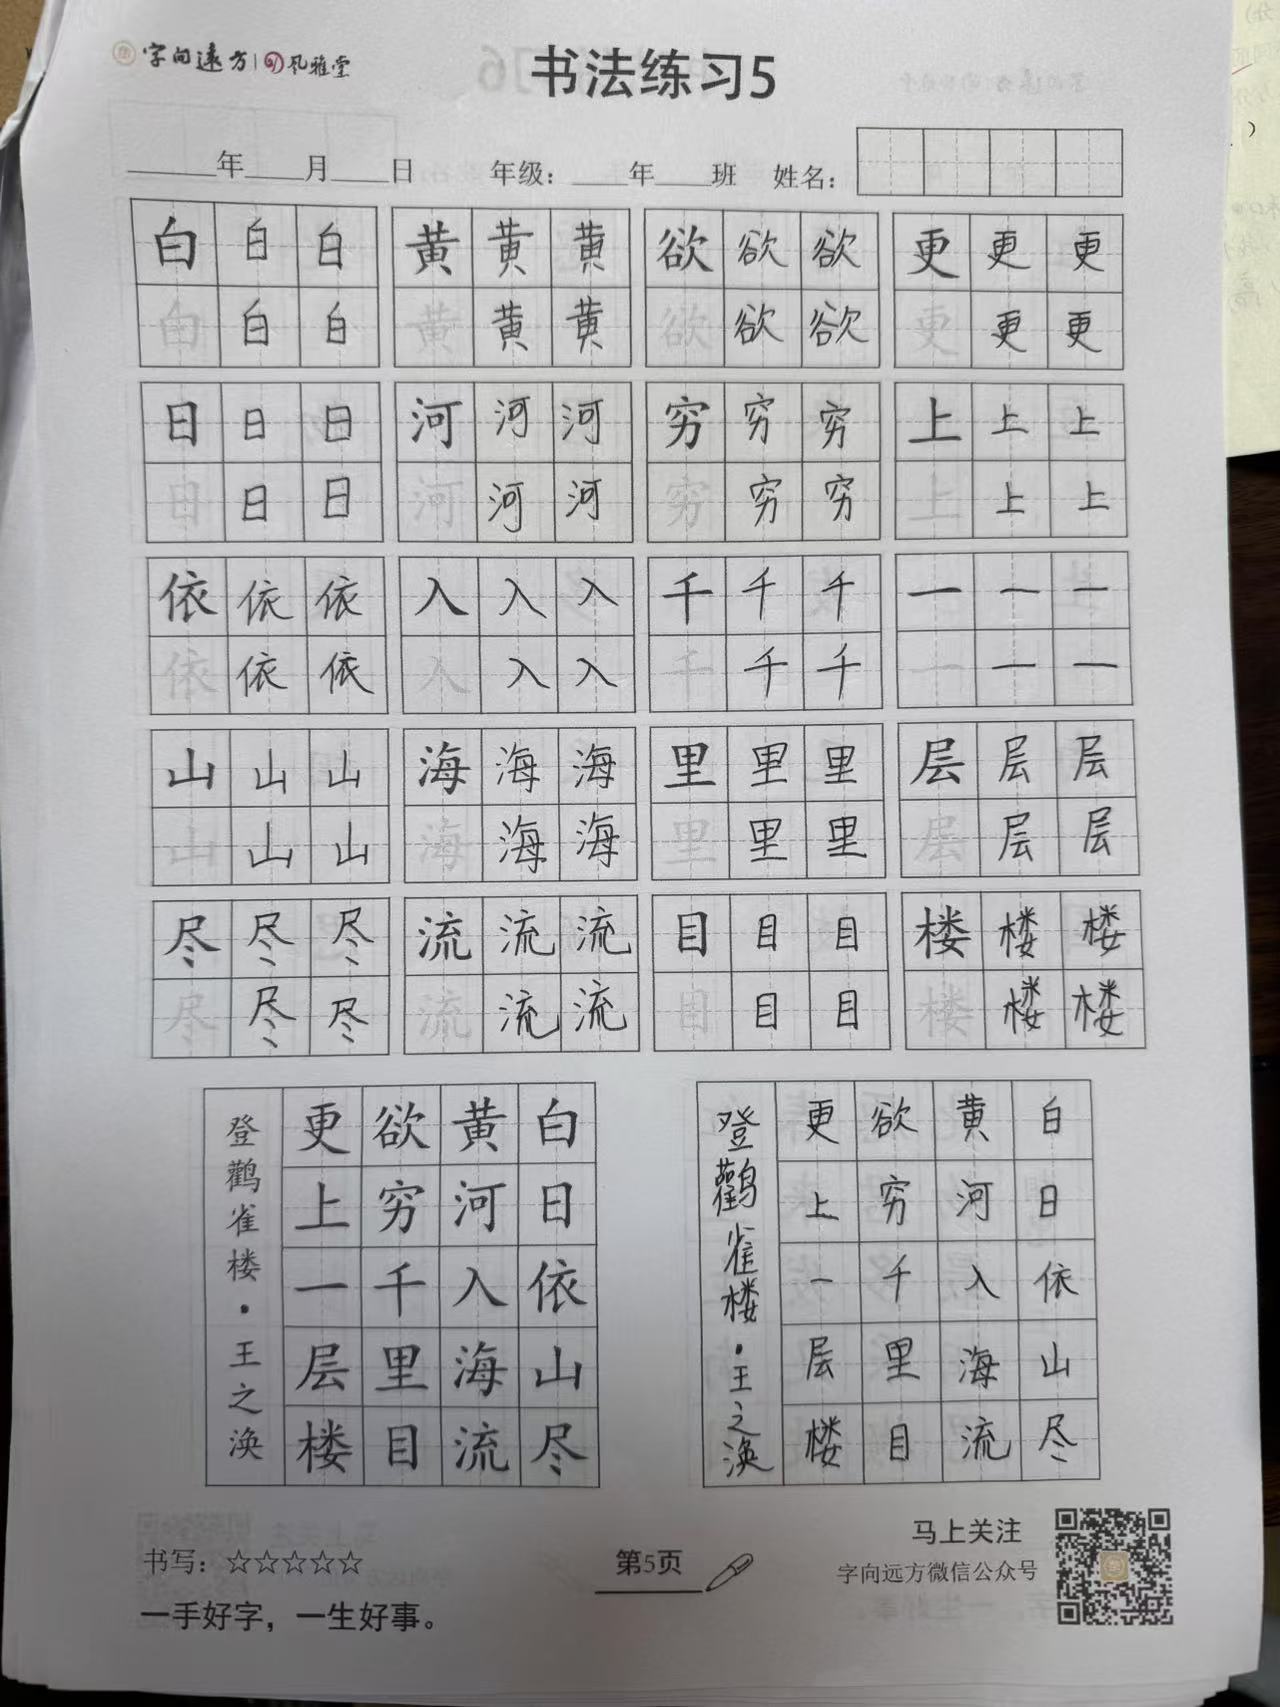 字向远方 风雅堂
书法练习5
年 月 日 年级： 年 班 姓名：
白 白 白 黄 黄 黄 欲 欲 欲 更 更 更
白 白 白 黄 黄 黄 欲 欲 欲 更 更 更
日 日 日 河 河 河 穷 穷 穷 上 上 上
日 日 日 河 河 河 穷 穷 穷 上 上 上
依 依 依 入 入 入 千 千 千 一 一 一
依 依 依 入 入 入 千 千 千 一 一 一
山 山 山 海 海 海 里 里 里 层 层 层
山 山 山 海 海 海 里 里 里 层 层 层
尽 尽 尽 流 流 流 目 目 目 楼 楼 楼
尽 尽 尽 流 流 流 目 目 目 楼 楼 楼
白日依山尽
黄河入海流
欲穷千里目
更上一层楼
登鹳雀楼·王之涣
白日依山尽
黄河入海流
欲穷千里目
更上一层楼
登鹳雀楼·王之涣
书写：☆☆☆☆☆
一手好字，一生好事。
第5页
马上关注
字向远方微信公众号